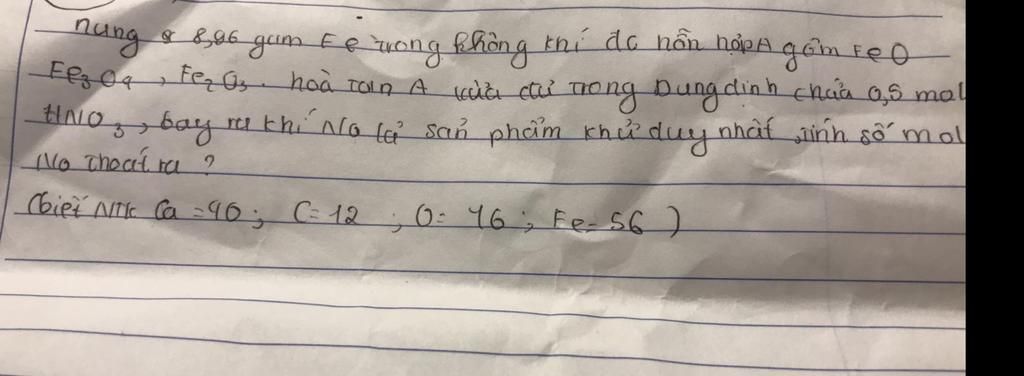 nung 8,96 gam Fe trong không khí dc hỗn hợp A gồm FeO
Fe3O4, Fe2O3. hoà tan A vừa đủ trong Dung dinh chứa 0,5 mol
HNO3, bay ra khí No là sản phẩm khử duy nhất, tính số mol
No thoát ra?
(biết NTK Ca = 40; C = 12; O = 16; Fe = 56)